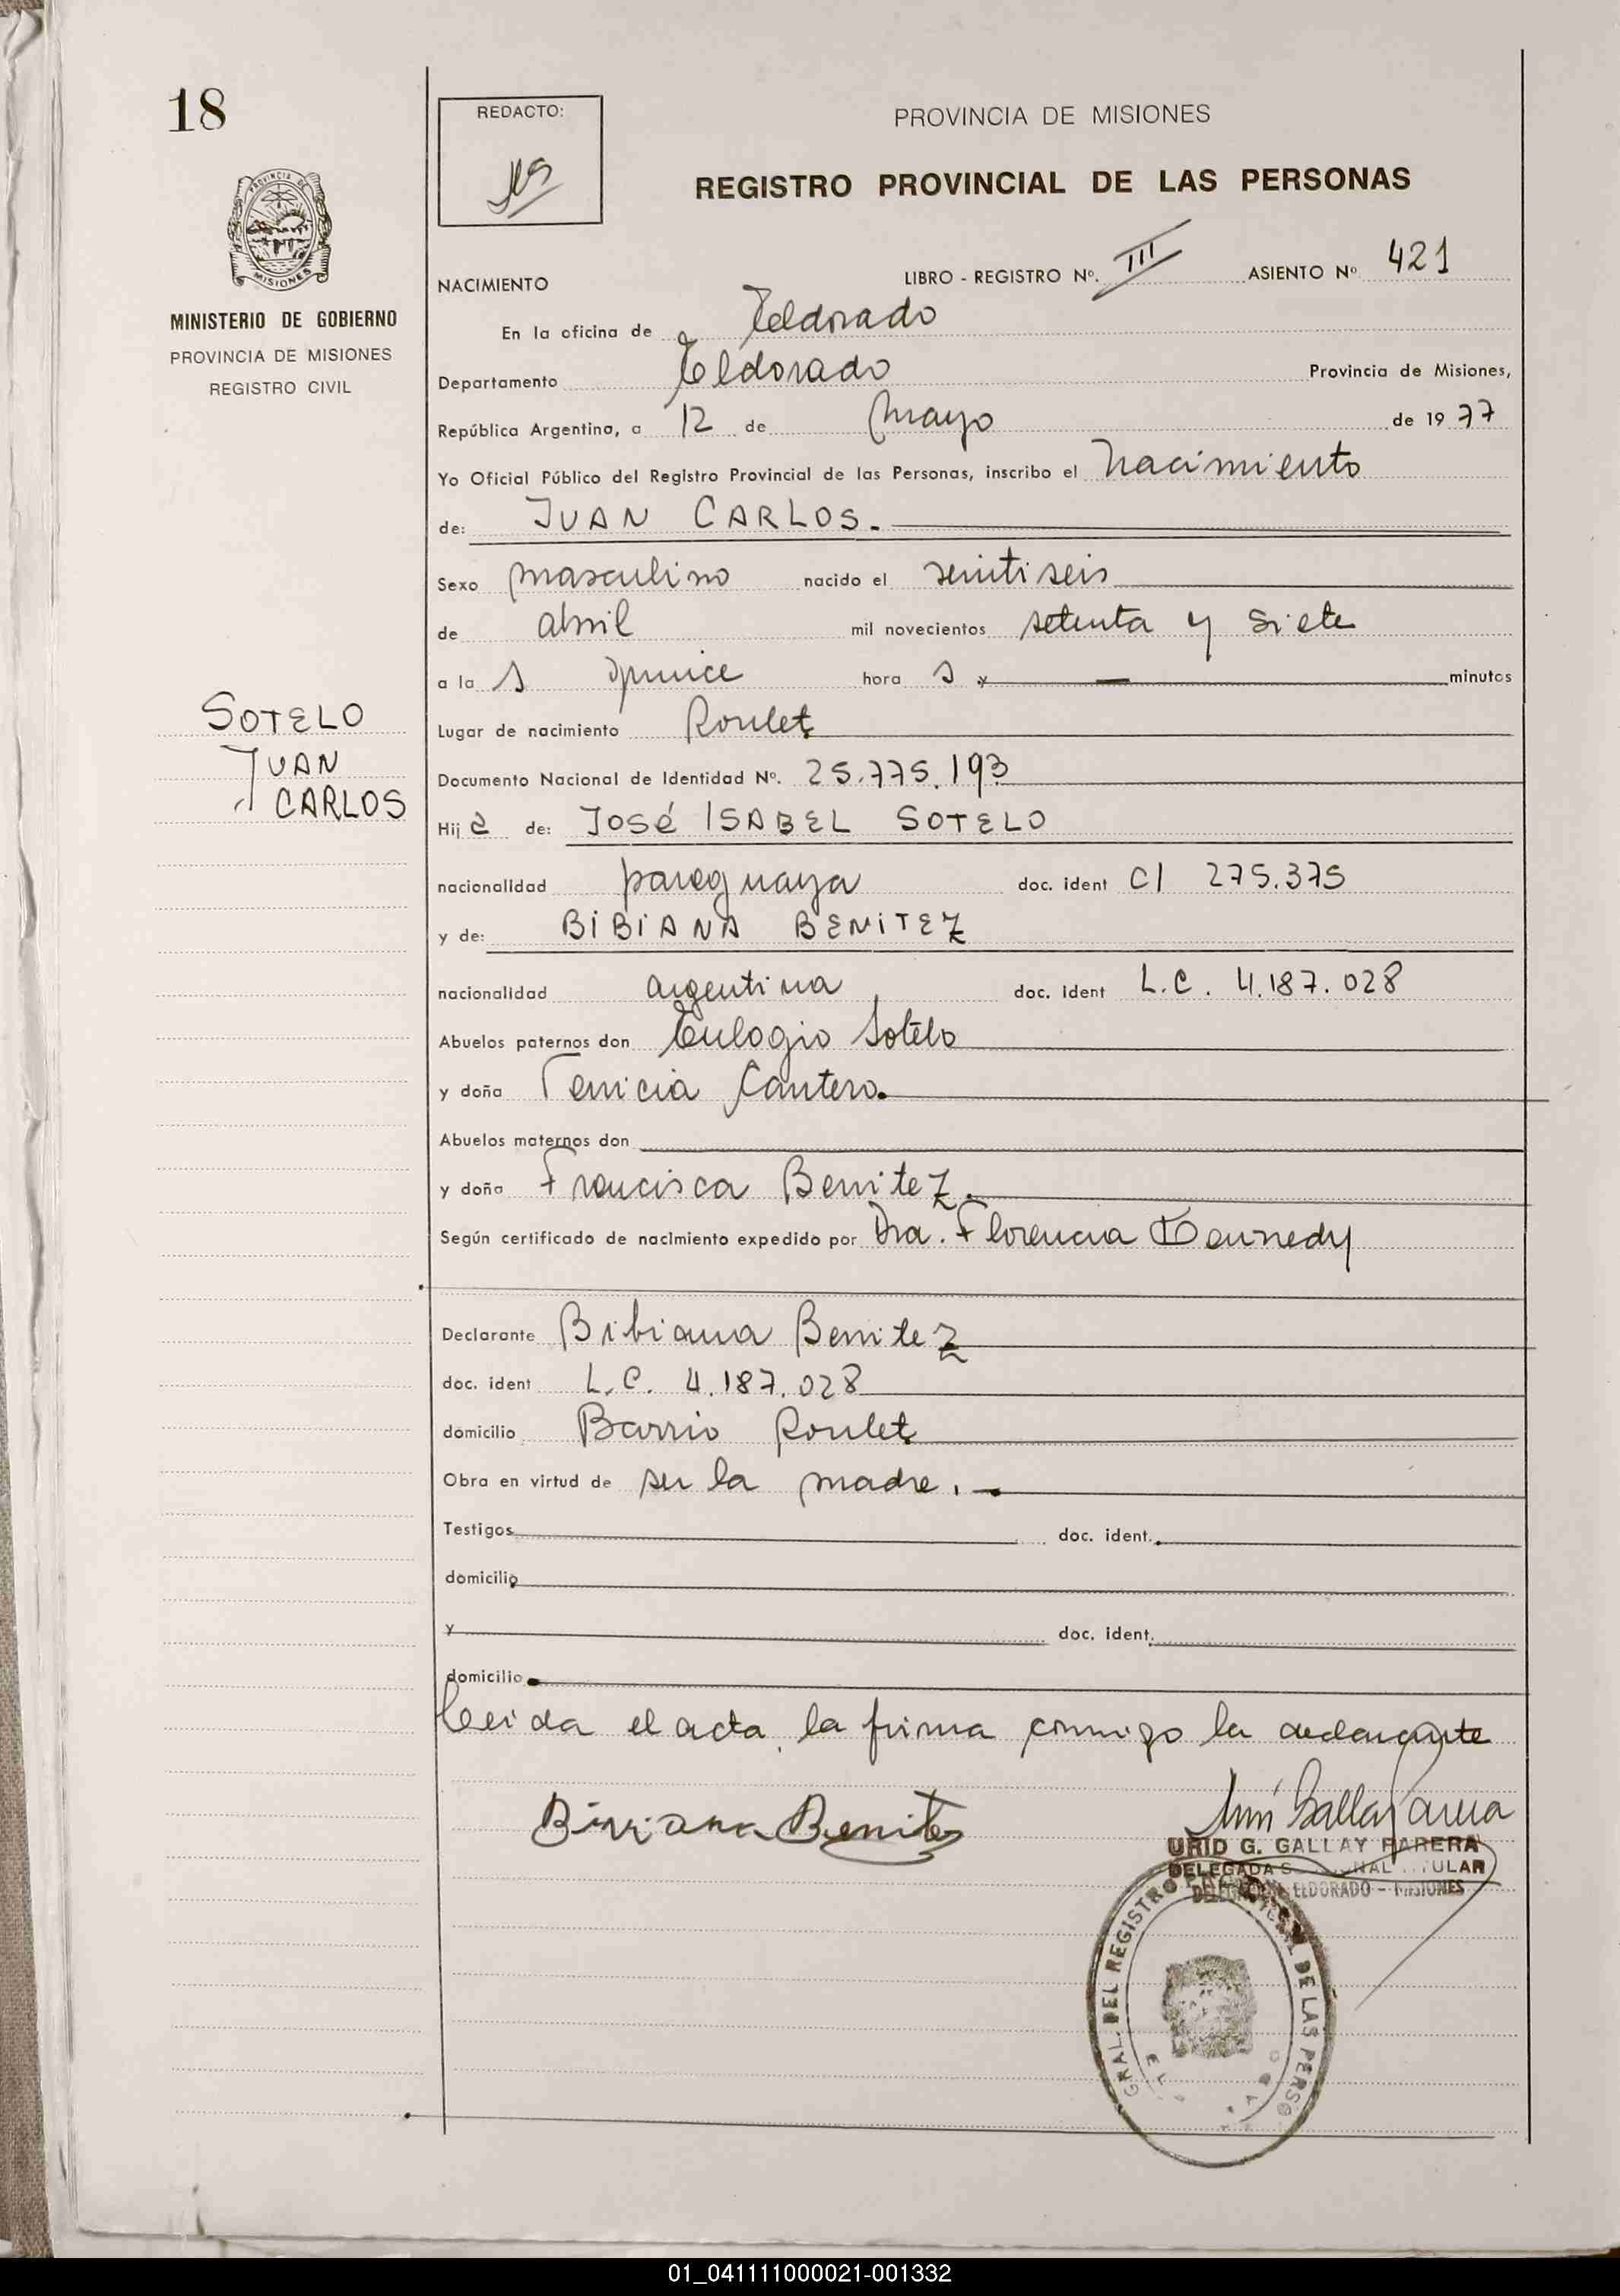 18
REDACTO:
PROVINCIA DE MISIONES
REGISTRO PROVINCIAL DE LAS PERSONAS
PROVINCIA DE
MISIONES
MINISTERIO DE GOBIERNO
PROVINCIA DE MISIONES
REGISTRO CIVIL
NACIMIENTO LIBRO - REGISTRO Nº. III ASIENTO Nº 421
En la oficina de Eldorado
Departamento Eldorado Provincia de Misiones,
República Argentina, a 12 de Mayo de 1977
Yo Oficial Público del Registro Provincial de las Personas, inscribo el nacimiento
de: JUAN CARLOS.
Sexo masculino nacido el veintiseis
de abril mil novecientos setenta y siete
a la s quince hora s y — minutos
SOTELO
JUAN
CARLOS
Lugar de nacimiento Roulet
Documento Nacional de Identidad Nº. 25.775.193
Hij o de: JOSÉ ISABEL SOTELO
nacionalidad paraguaya doc. ident CI 275.375
y de: BIBIANA BENITEZ
nacionalidad argentina doc. ident L.C. 4.187.028
Abuelos paternos don Eulogio Sotelo
y doña Fenicia Cantero.
Abuelos maternos don
y doña Francisca Benitez.
Según certificado de nacimiento expedido por Dra. Florencia Kennedy
Declarante Bibiana Benitez
doc. ident L.C. 4.187.028
domicilio Barrio Roulet
Obra en virtud de ser la madre.
Testigos doc. ident.
domicilio
y doc. ident.
domicilio
Leida el acta, la firma conmigo la declarante
Biviana Benitez
URID G. GALLAY PARERA
DELEGADA TITULAR
ELDORADO - MISIONES
GRAL. DEL REGISTRO DE LAS PERSO
01_041111000021-001332